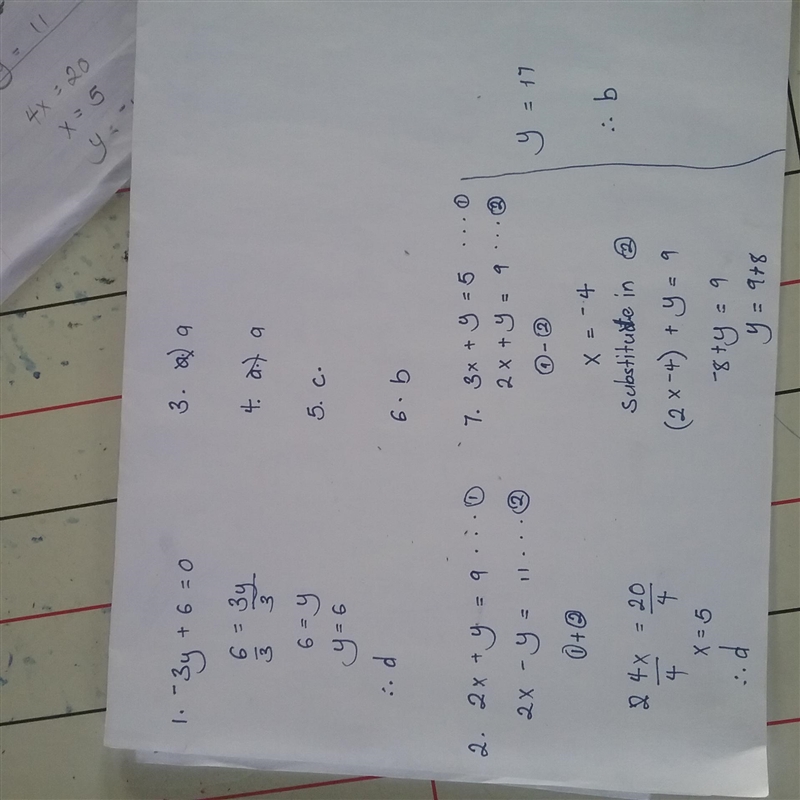 1. -3y + 6 = 0
6/3 = 3y/3
6 = y
y = 6
∴ d
2. 2x + y = 9 ... ①
2x - y = 11 ... ②
① + ②
2 4x/4 = 20/4
x = 5
∴ d
3. a) 9
4. a) 9
5. c.
6. b
7. 3x + y = 5 ... ①
2x + y = 9 ... ②
① - ②
x = -4
Substitute in ②
(2 x -4) + y = 9
-8 + y = 9
y = 9 + 8
y = 17
∴ b
y = 11
4x = 20
x = 5
y = -